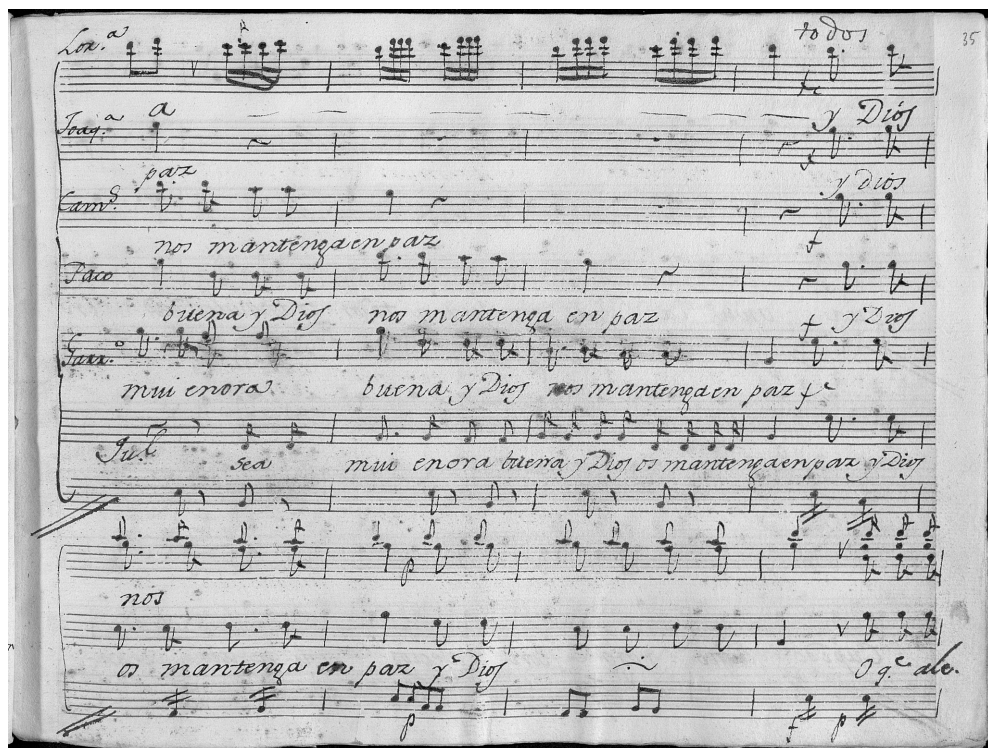 Lor.ª todos 35
Joaq.ª a y Dios
Cam.s paz y dios
nos mantenga en paz
Paco
buena y Dios nos mantenga en paz y Dios
Garr.o
mui enora buena y Dios nos mantenga en paz
sea mui enora buena y Dios os mantenga en paz y Dios
nos
os mantenga en paz y Dios O q.e ale.